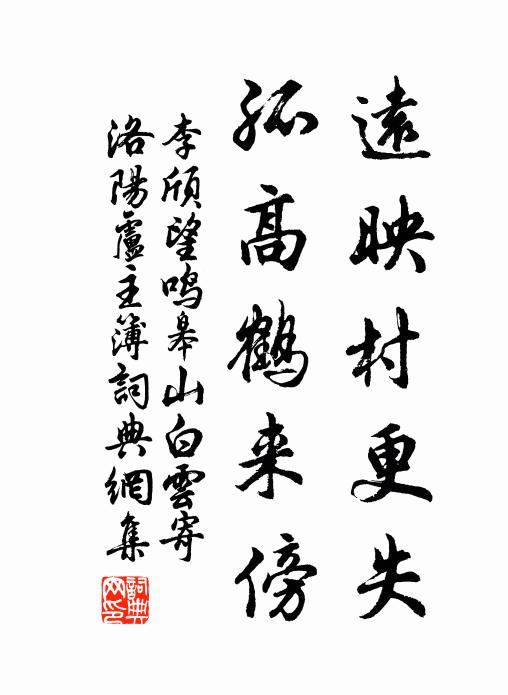 遠映村更失
孤高鶴来傍
李頎望鳴皋山白雲寄
洛陽盧主簿詞典網集
詞典網印